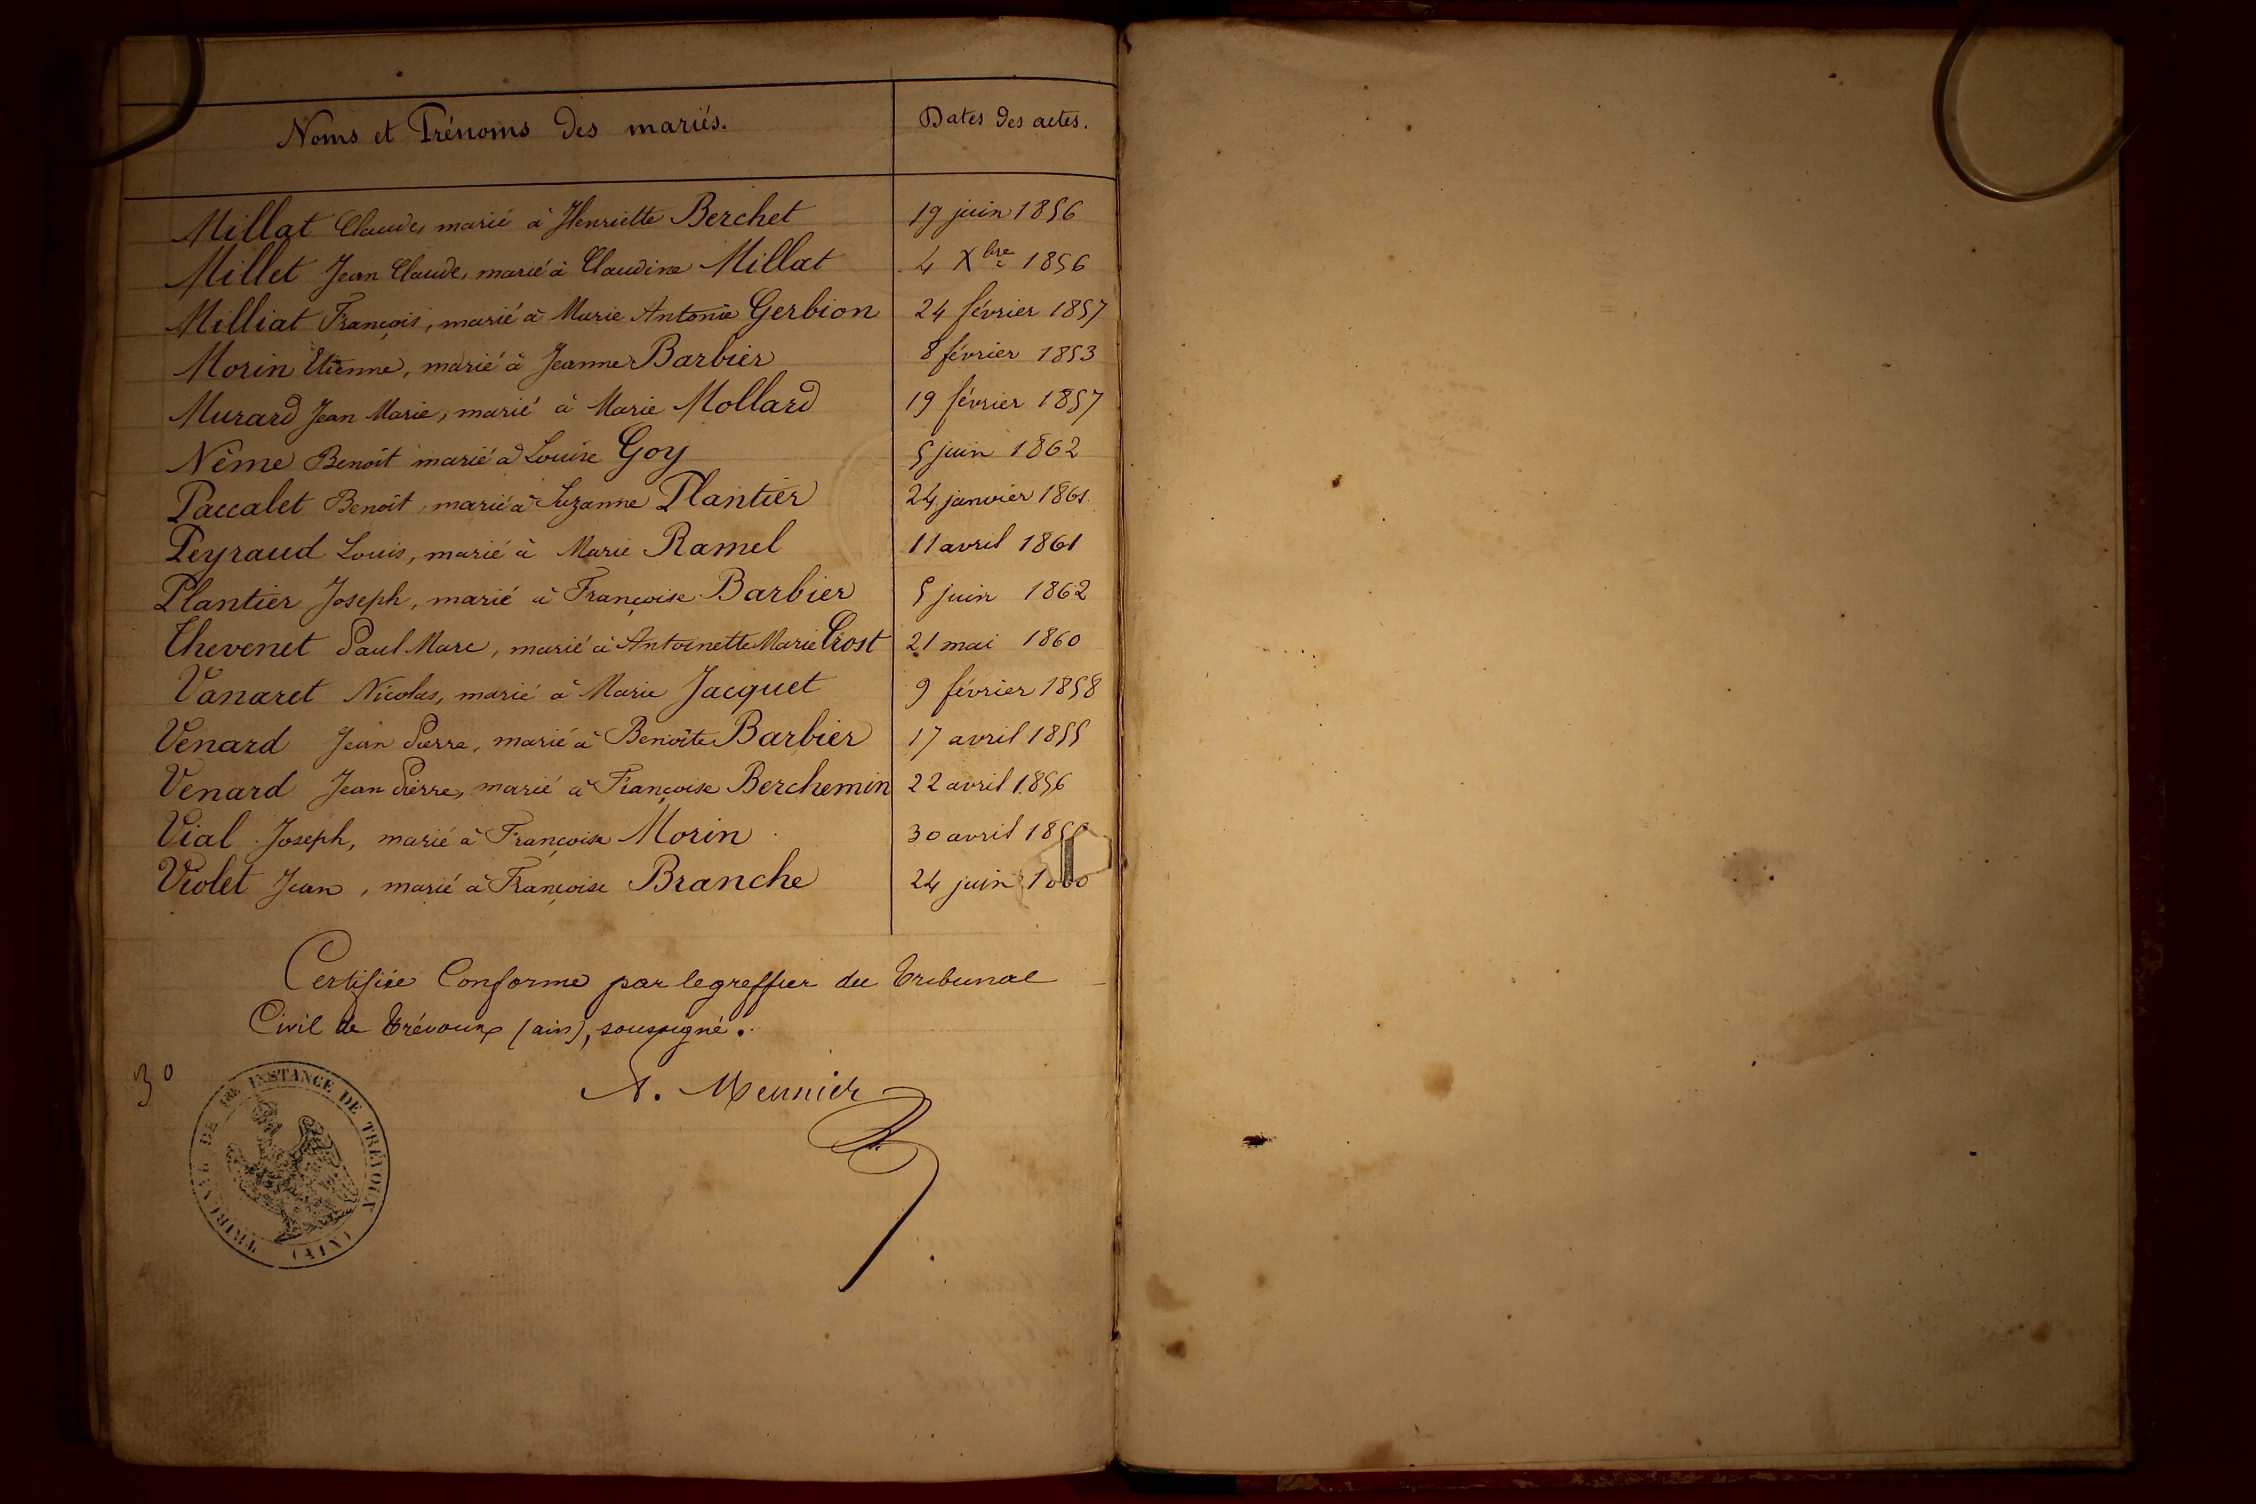 Noms et Prénoms des mariés.
Dates des actes.
Millat Claude, marié à Henriette Berchet 19 juin 1856
Millet Jean Claude, marié à Claudine Millat 4 Xbre 1856
Milliat François, marié à Marie Antonie Gerbion 24 février 1857
Morin Etienne, marié à Jeanne Barbier 8 février 1853
Murard Jean Marie, marié à Marie Mollard 19 février 1857
Nême Benoît marié à Louise Goy 5 juin 1862
Paccalet Benoît, marié à Suzanne Plantier 24 janvier 1861
Peyraud Louis, marié à Marie Ramel 11 avril 1861
Plantier Joseph, marié à Françoise Barbier 5 juin 1862
Thevenet Paul Marc, marié à Antoinette Marie Crost 21 mai 1860
Vanaret Nicolas, marié à Marie Jacquet 9 février 1858
Venard Jean Pierre, marié à Benoîte Barbier 17 avril 1855
Venard Jean Pierre, marié à Françoise Berchemin 22 avril 1856
Vial Joseph, marié à Françoise Morin 30 avril
Violet Jean, marié à Françoise Branche 24 juin
Certifiée Conforme par le greffier du Tribunal
Civil de Trévoux (ain), soussigné.
A. Meunier
TRIBUNAL DE 1RE INSTANCE DE TRÉVOUX
(AIN)